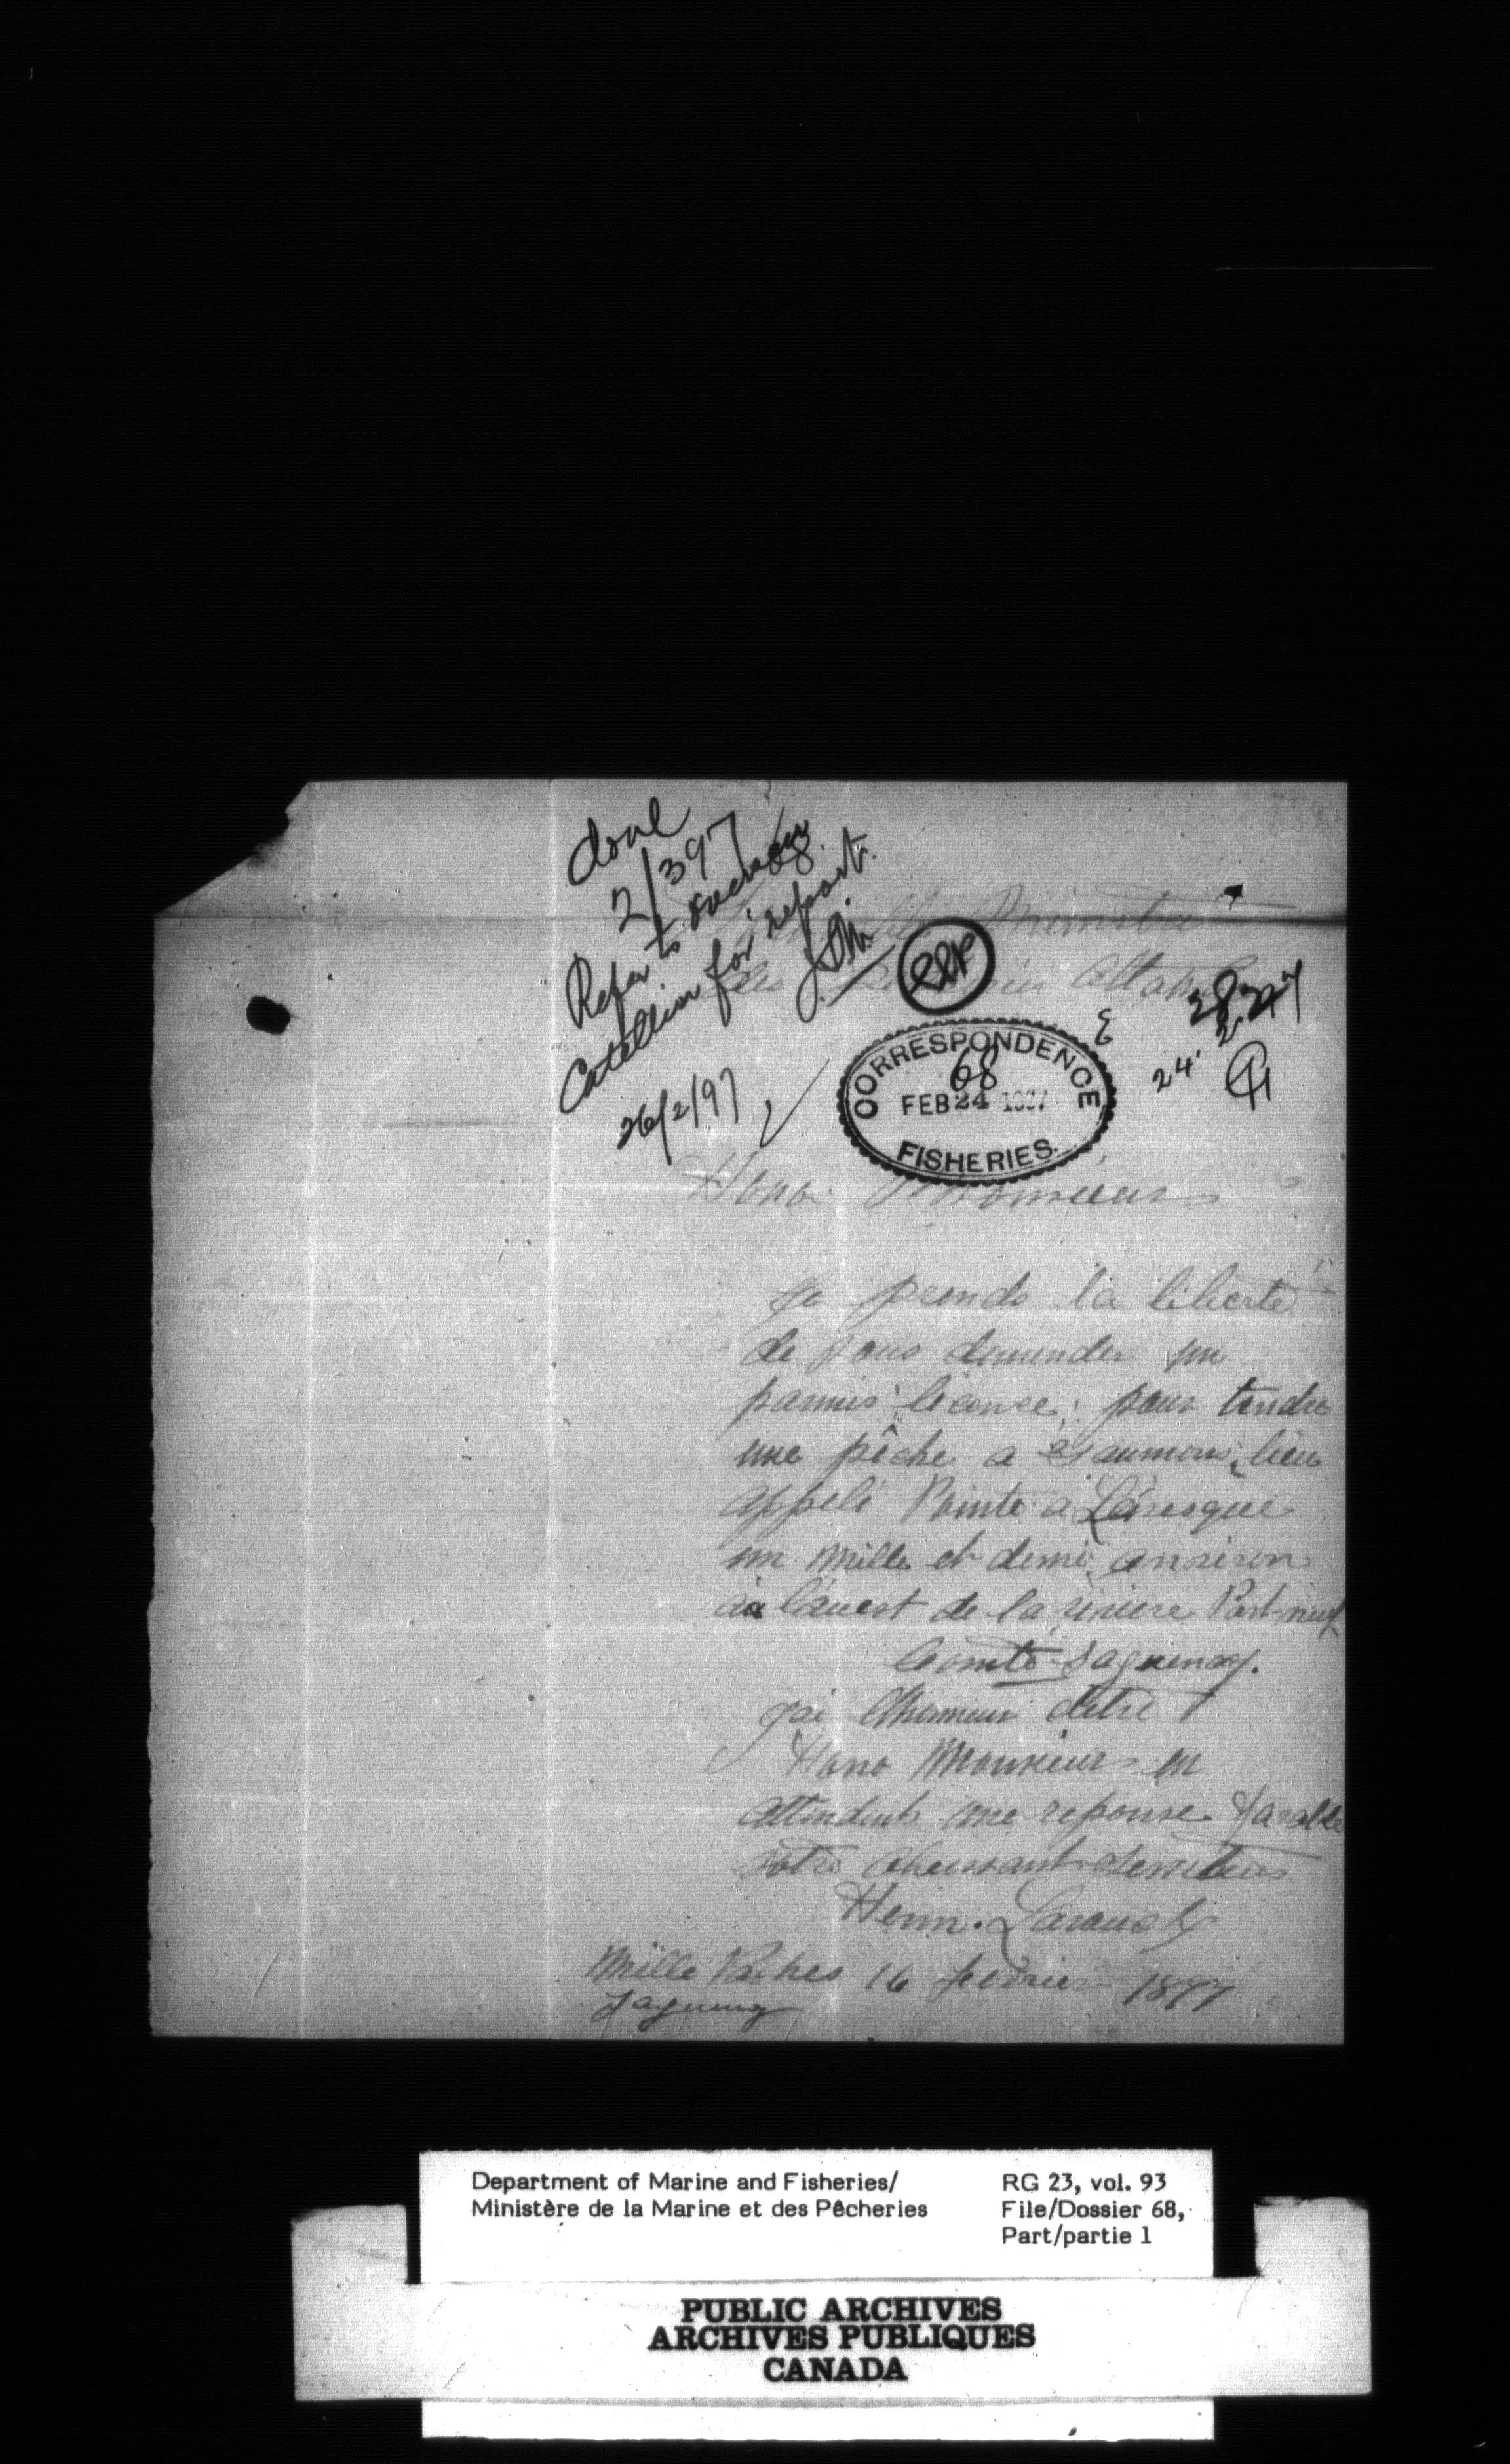 done
2/3 97
Refer to overseer
Catellier for report.
26/2/97
Ministre
des
CORRESPONDENCE
68
FEB 24 1897
FISHERIES.
24.
Hono. Monsieur
Je prends la liberté
de vous demander un
parmis licence: pour tendre
une pêche a Saumons, lieu
appelé Pointe a Lavesque
un mille et demi anviron
a l'auest de la riviere Port-neuf
Comté Saguenay.
J'ai l'honneur d'etre
Hono Monsieur en
attendent une reponse
votre obeissant serviteur
Henri. Larouch
Mille Vaches 16 fevrier 1897
Saguenay
Department of Marine and Fisheries/
Ministère de la Marine et des Pêcheries
RG 23, vol. 93
File/Dossier 68,
Part/partie 1
PUBLIC ARCHIVES
ARCHIVES PUBLIQUES
CANADA